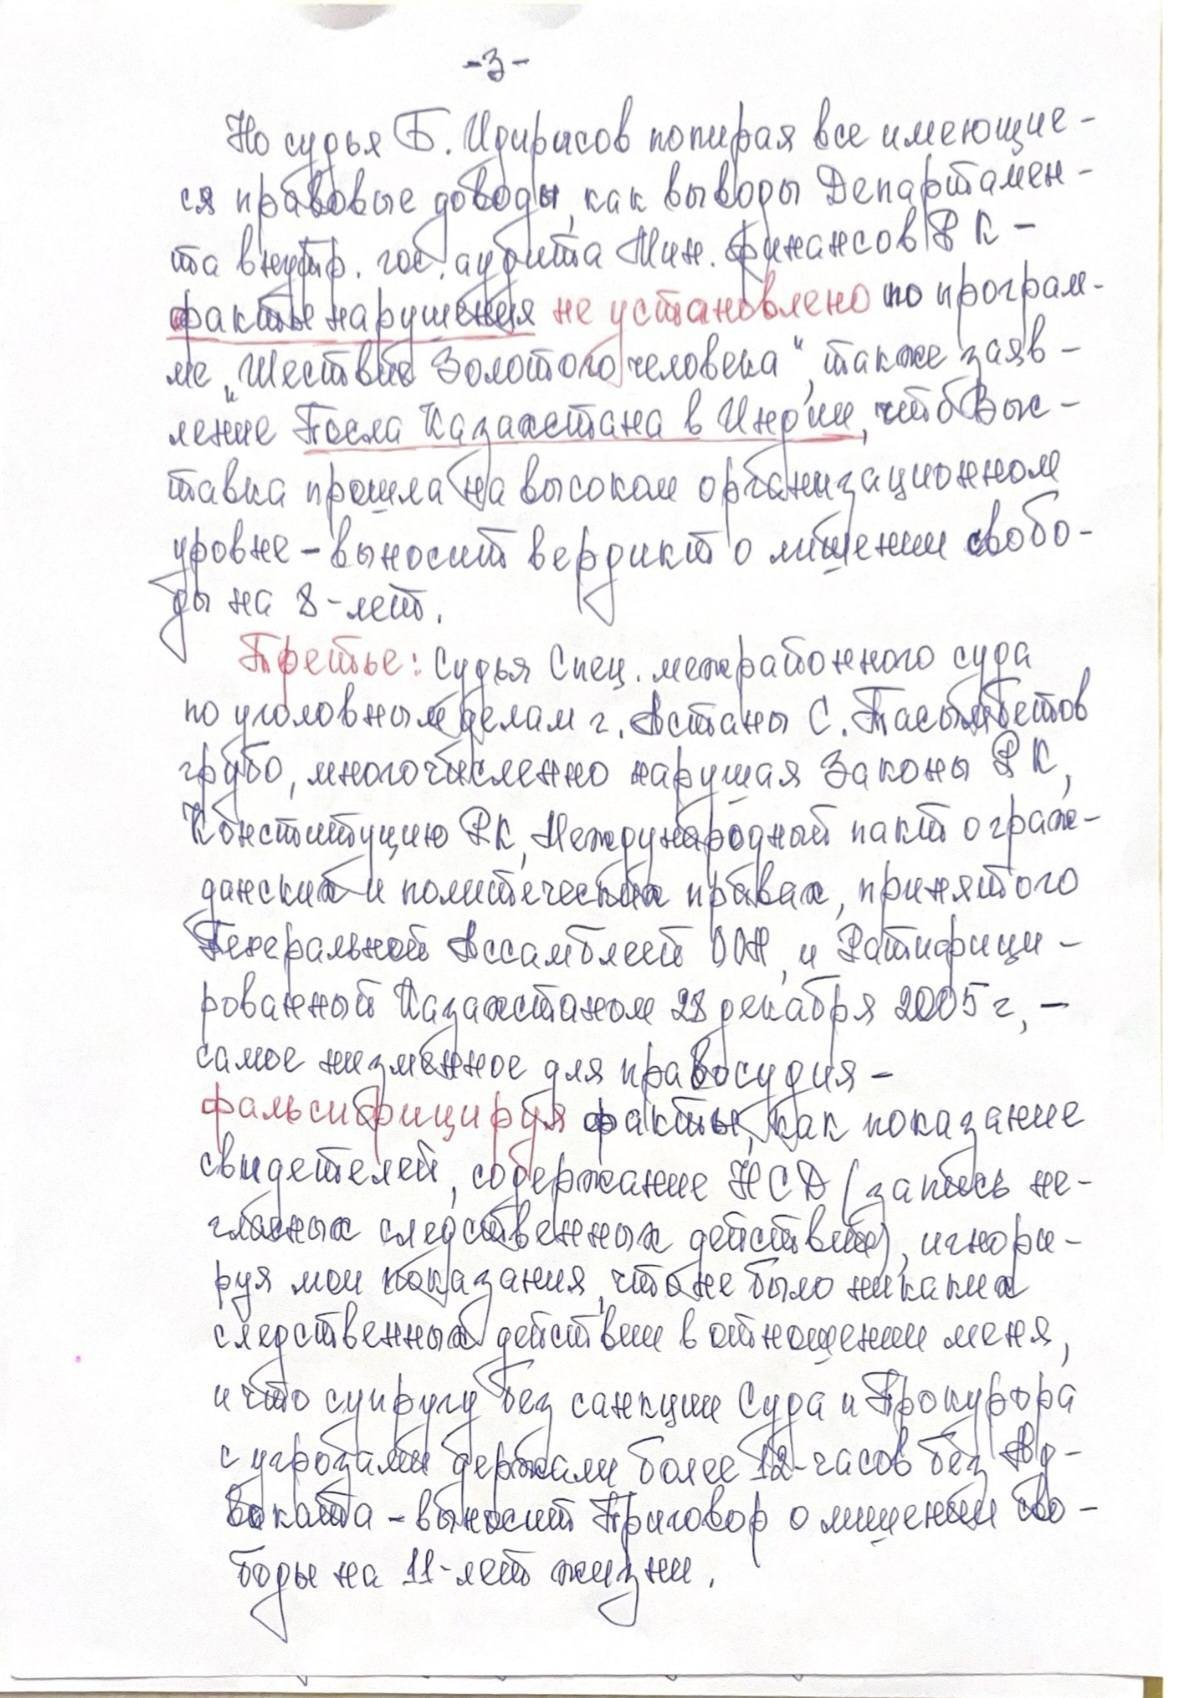 -3-
Но судья Б. Идирисов попирая все имеющие-
ся правовые доводы, как выводы Департамен-
та внутр. гос. аудита Мин. финансов РК -
факты нарушения не установлено по програм-
ме „Шествие Золотого человека“, также заяв-
ление Посла Казахстана в Индии, что Выс-
тавка прошла на высоком организационном
уровне - выносит вердикт о лишении свобо-
ды на 8-лет.
Третье: Судья Спец. межрайонного суда
по уголовным делам г. Астаны С. Тасымбетов
грубо, многочисленно нарушая Законы РК,
Конституцию РК, Международный пакт о граж-
данских и политических правах, принятого
Генеральной Ассамблеей ООН, и Ратифици-
рованный Казахстаном 28 декабря 2005 г, -
самое низменное для правосудия -
фальсифицируя факты, как показание
свидетелей, содержание НСД (запись не-
гласных следственных действий), игнори-
руя мои показания, что не было никаких
следственных действии в отношении меня,
и что супругу без санкции Суда и Прокурора
с угрозами держали более 12-часов без Ад-
воката - выносит Приговор о лишении сво-
боды на 11-лет жизни.